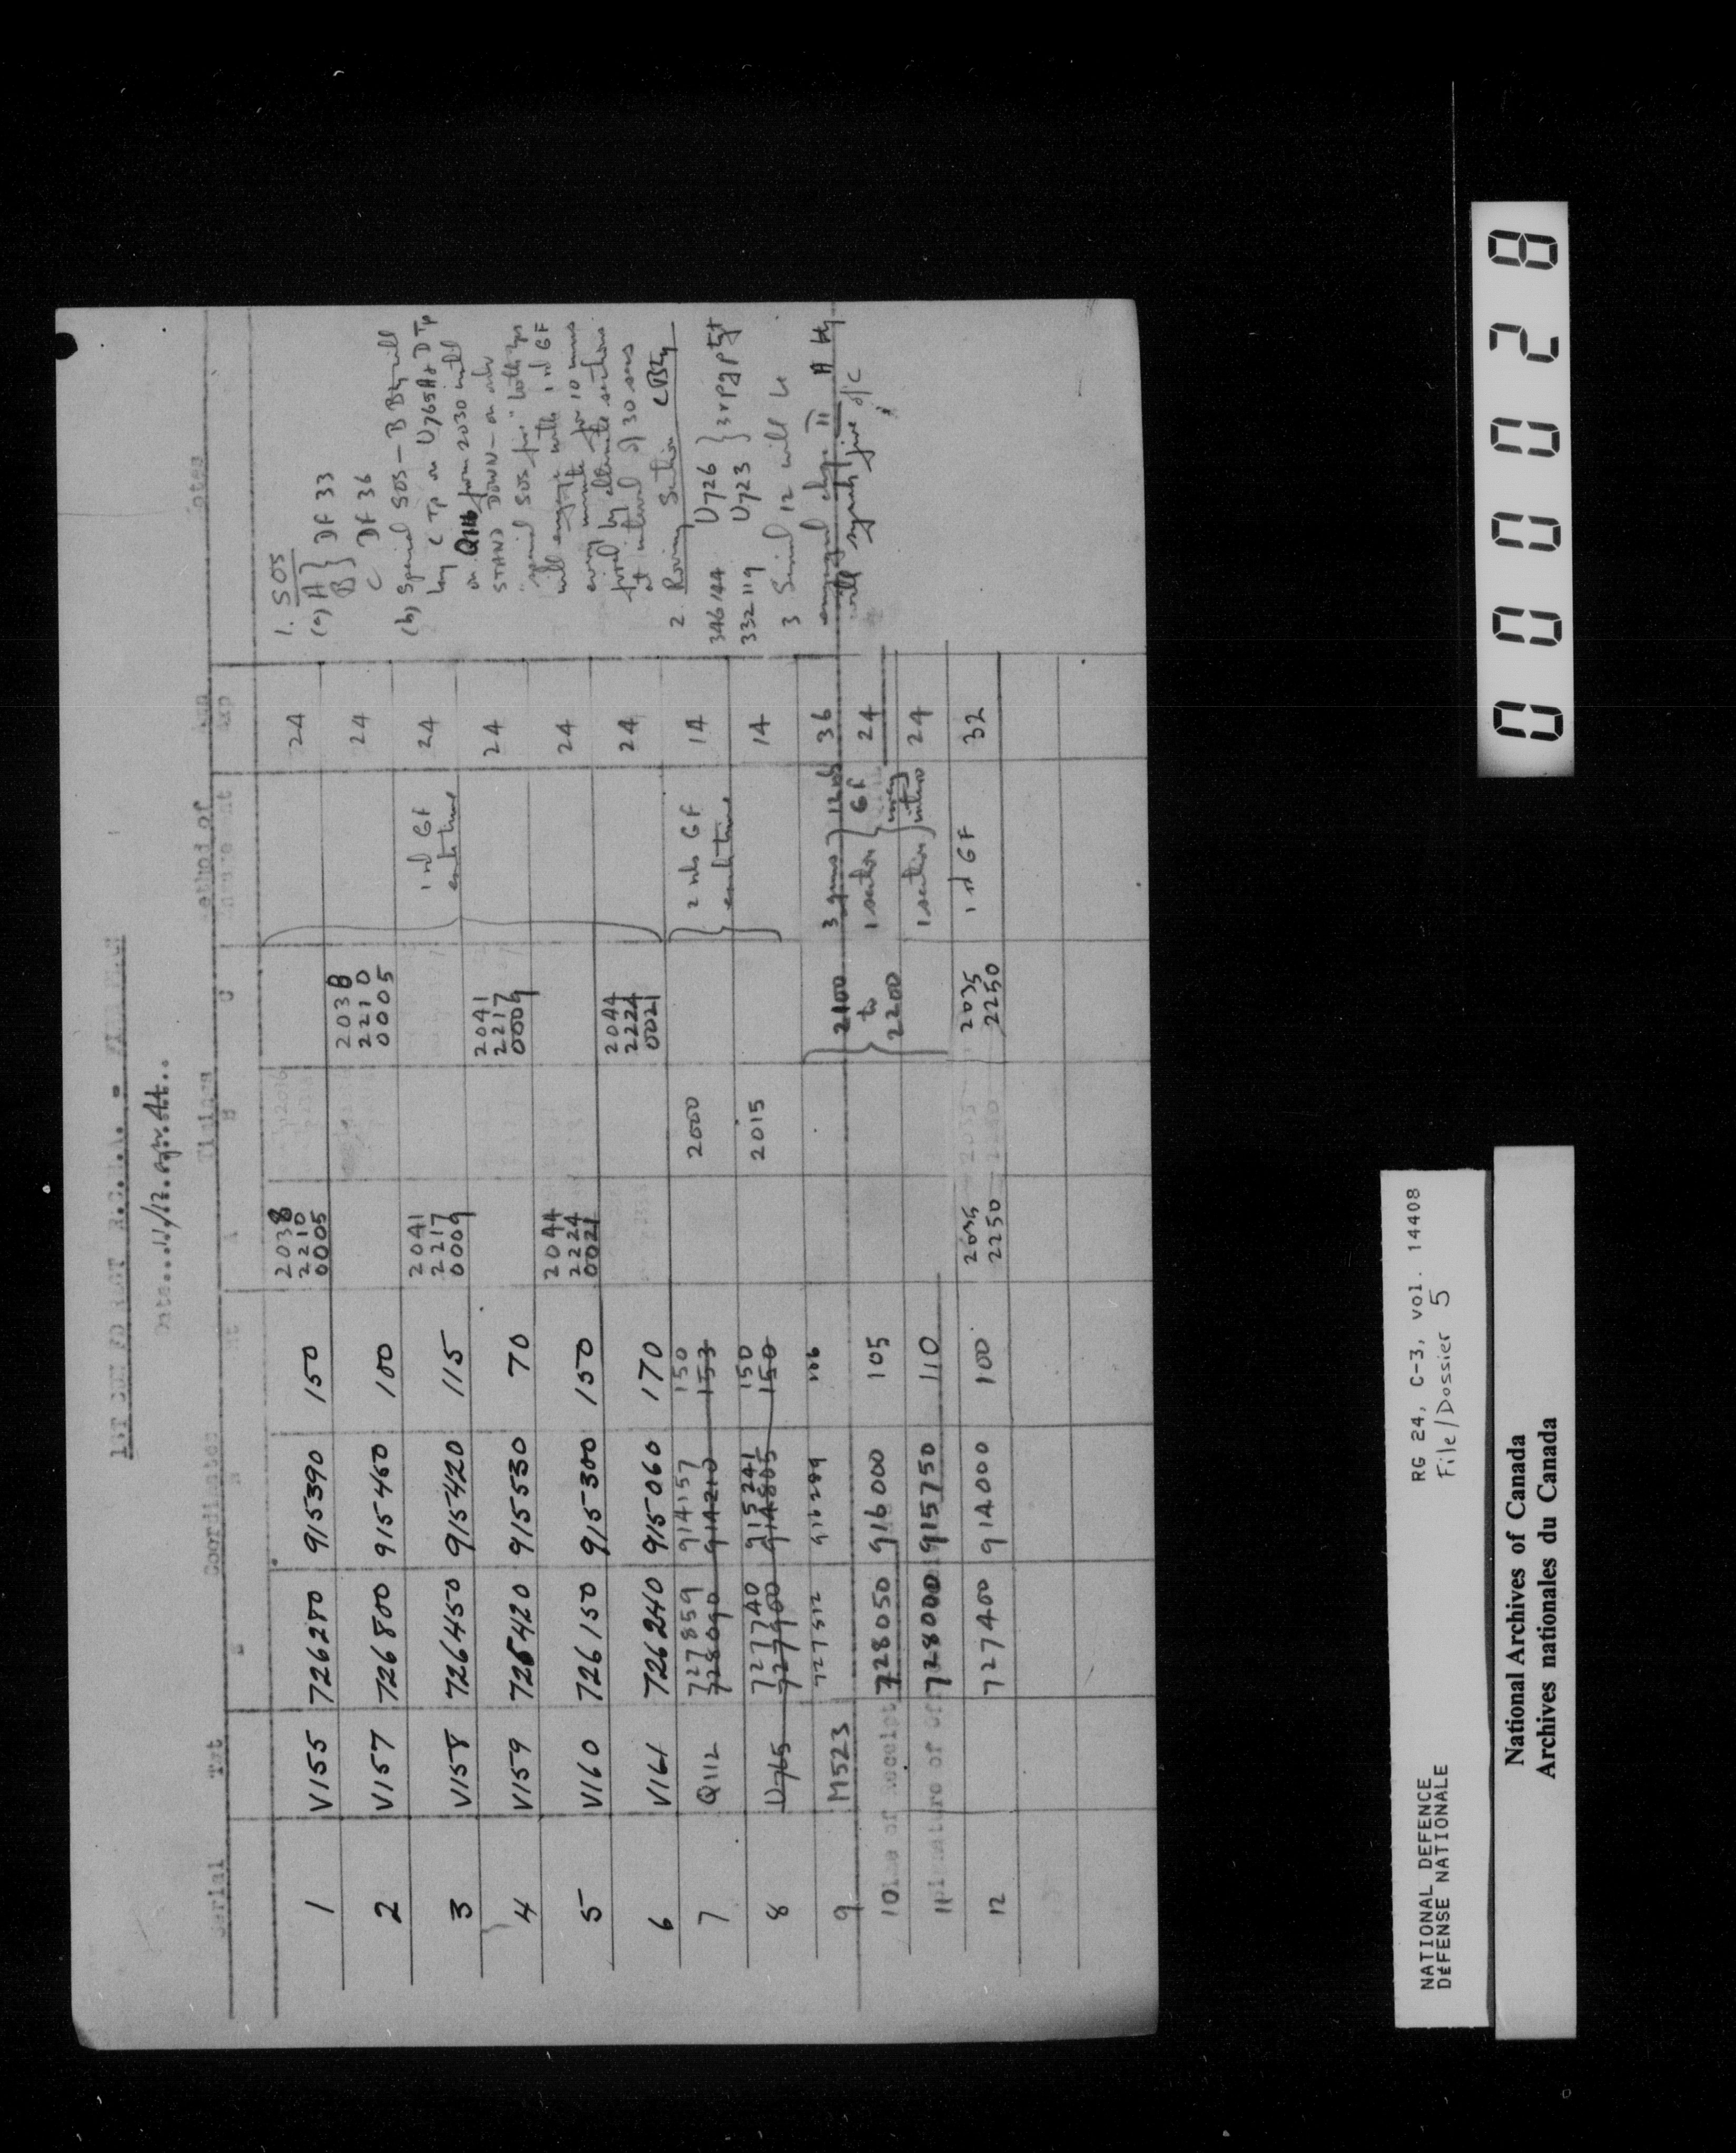 1ST CDN FD REGT R.C.H.A. - FIRE PLAN
Date...11/12 Apr 44...
Serial Tgt Coordinates Timings Method of Amn Notes
A B C Exp
1 V155 726280 915390 150 2038 24
2210
0005
2 V157 726800 915460 100 2038 24
2210
0005
3 V158 726450 915420 115 2041 1 rd GF 24
2217
0009
4 V159 726420 915530 70 2041 24
2217
0009
5 V160 726150 915300 150 2044 24
2224
0021
6 V161 726240 915060 170 2044 24
2224
0021
7 Q112 727859 914157 150 2000 2 rds GF 14
728090 914210 153
8 U765 727740 915241 150 2015 14
727900 914805 150
9 M523 727512 916289 106 2100 3 guns 36
to
2200
10 728050 916000 105 1 section GF 24
Time of Receipt
11 728000 915750 110 1 section 24
12 727400 914000 100 2035 2035 1 rd GF 32
2250 2250
1. SOS
(a) A } DF 33
B
C DF 36
(b) Special SOS - B Bty will
lay C Tp on U765 A & D Tp
on Q116 from 2030 until
STAND DOWN - on order
"special SOS fire" both tps
will engage with 1 rd GF
every minute for 10 mins
fired by alternate sections
at interval of 30 secs
2. Roving Section C Bty
346144 U726
332119 U723
3 Serial 12 will be
engaged chge II A Bty
will signal fire
0000028
NATIONAL DEFENCE RG 24, C-3, vol. 14408
DÉFENSE NATIONALE File/Dossier 5
National Archives of Canada
Archives nationales du Canada